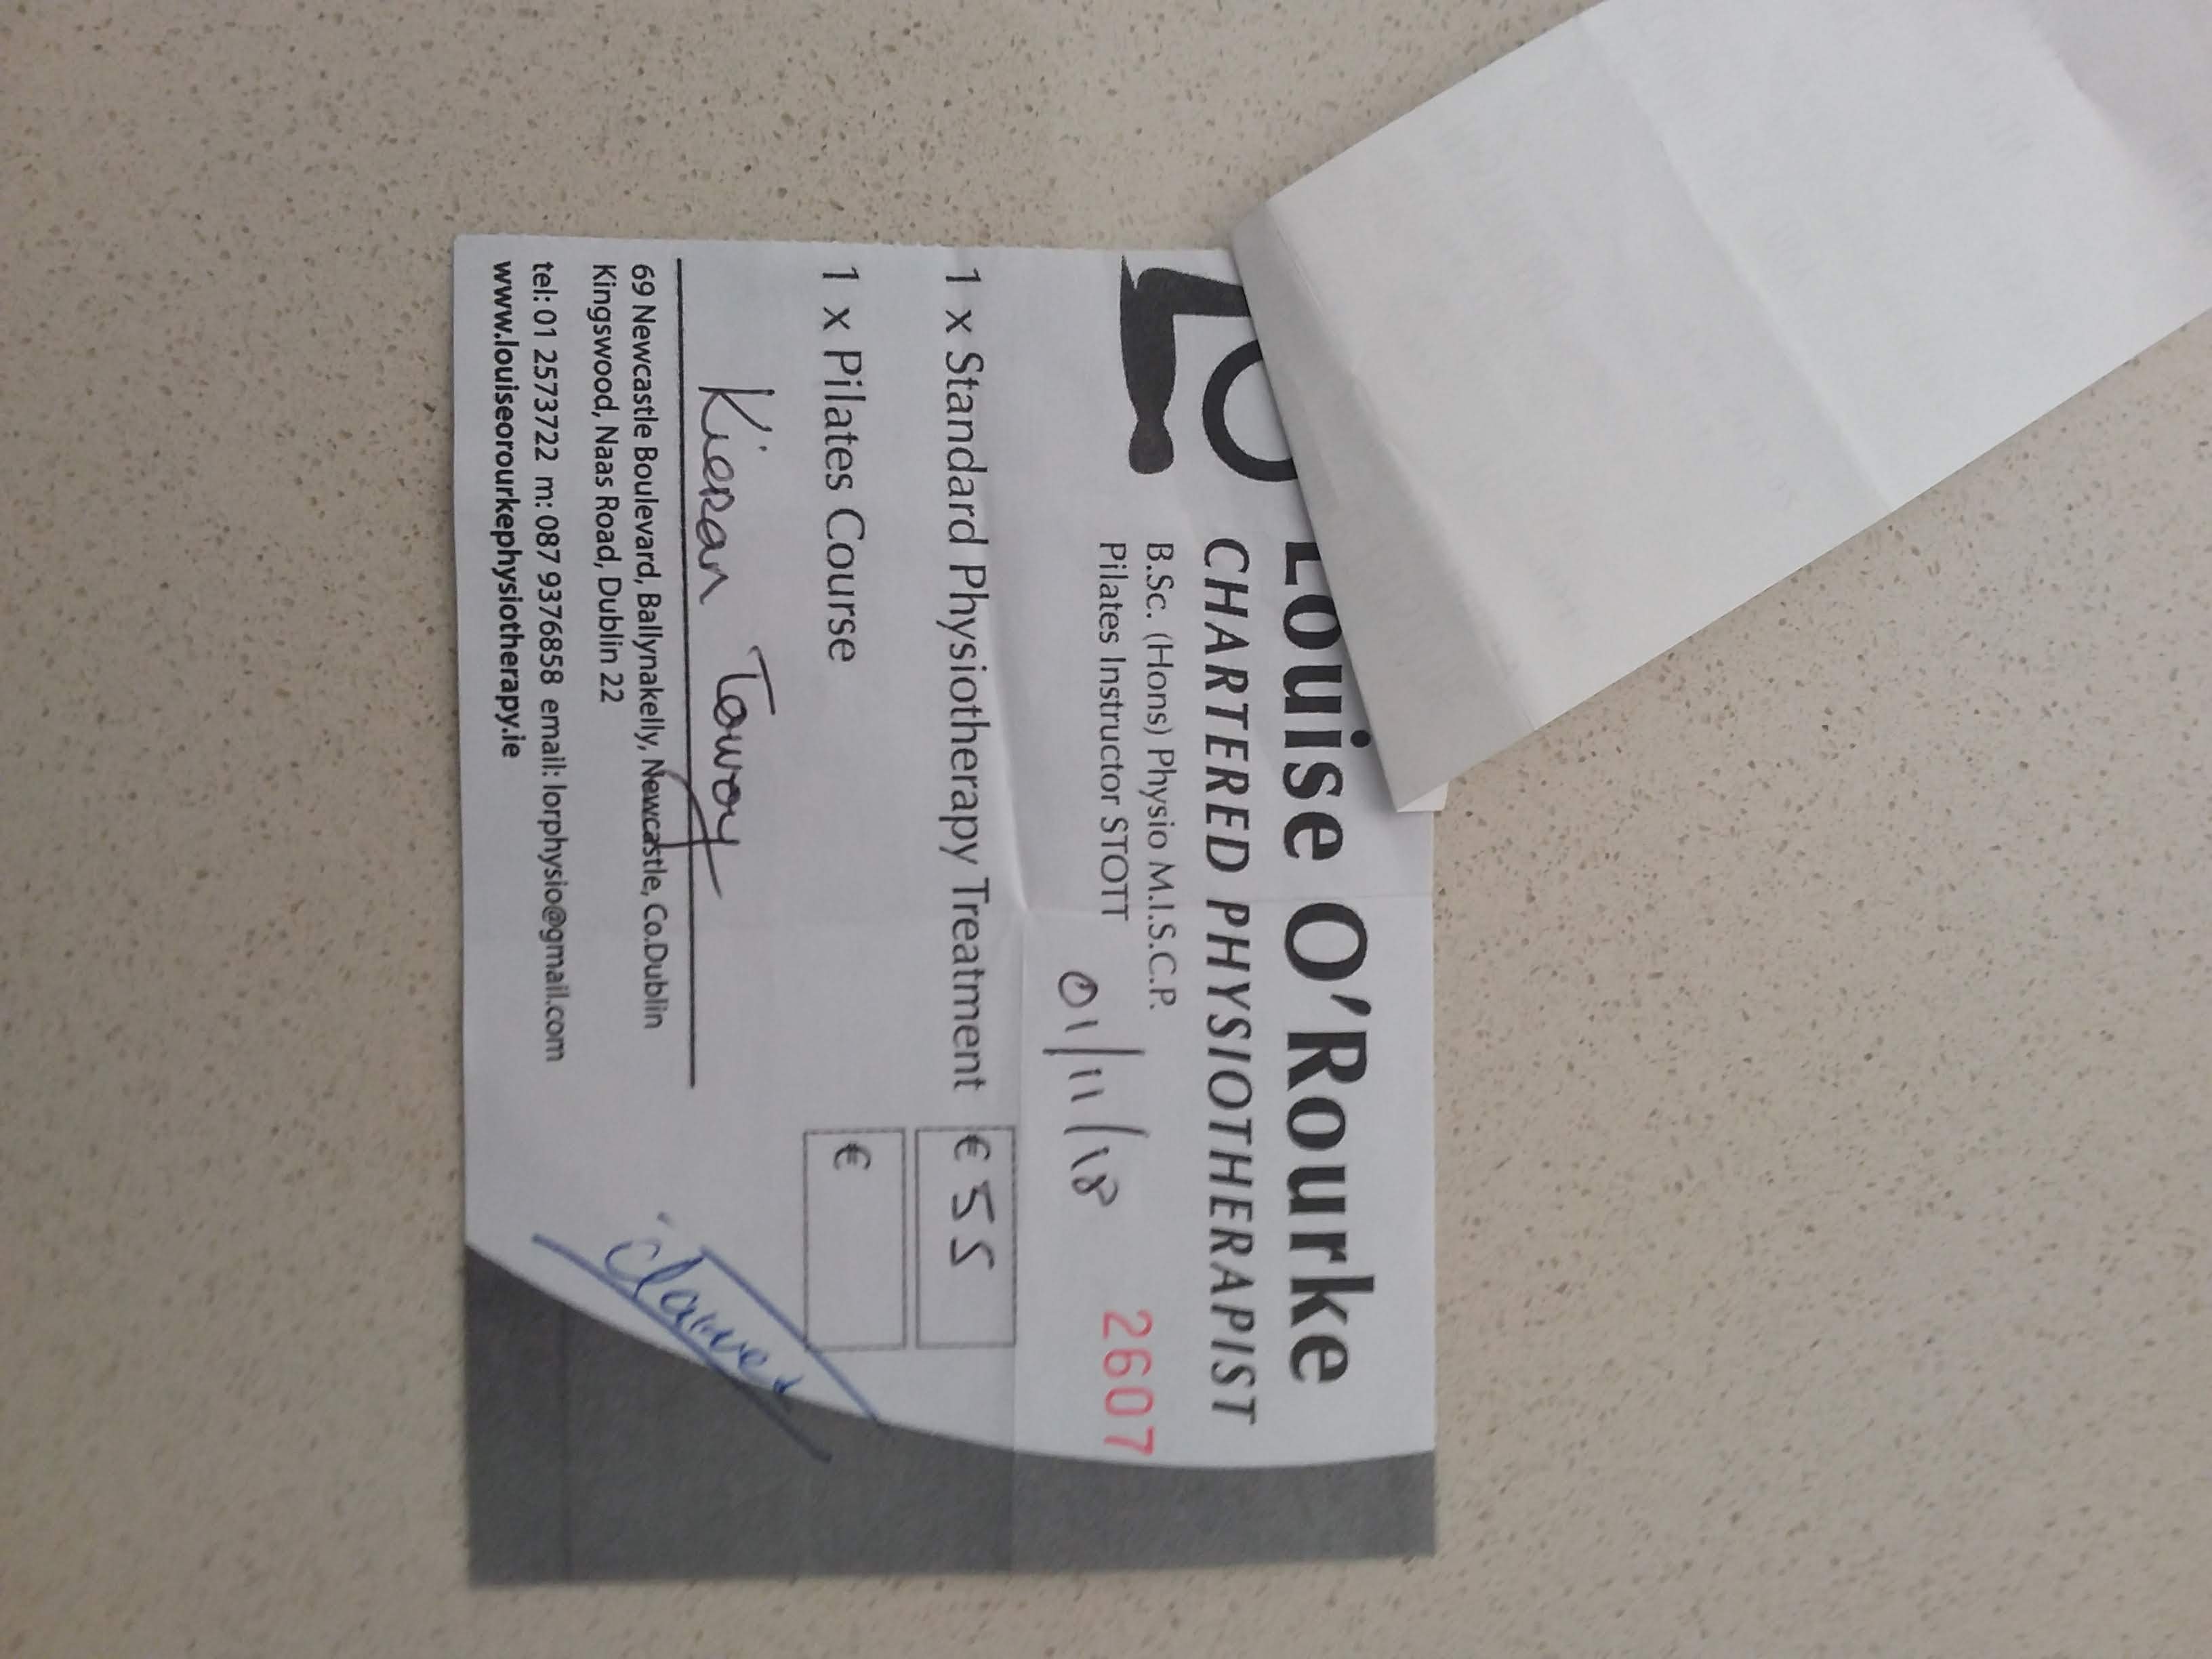 Louise O'Rourke
CHARTERED PHYSIOTHERAPIST
B.Sc. (Hons) Physio M.I.S.C.P.
Pilates Instructor STOTT
01/11/18
2607
1 x Standard Physiotherapy Treatment € 55
1 x Pilates Course €
Kieran
69 Newcastle Boulevard, Ballynakelly, Newcastle, Co.Dublin
Kingswood, Naas Road, Dublin 22
tel: 01 2573722 m: 087 9376858 email: lorphysio@gmail.com
www.louiseorourkephysiotherapy.ie